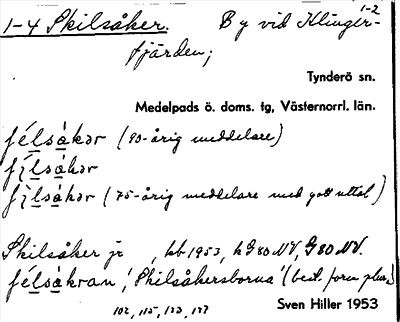 1-2
1-4 Skilsåker. By vid Klinger-
fjärden;
Tynderö sn.
Medelpads ö. doms. tg, Västernorrl. län.
félsàkər (90-årig meddelare)
fílsàkər
fílsàkər (75-årig meddelare med gott uttal)
Skilsåker jr , kb 1953, kG80NV, G80NV.
félsàkran, 'Skilsåkersborna' (best. form plur.)
102, 115, 123, 127
Sven Hiller 1953